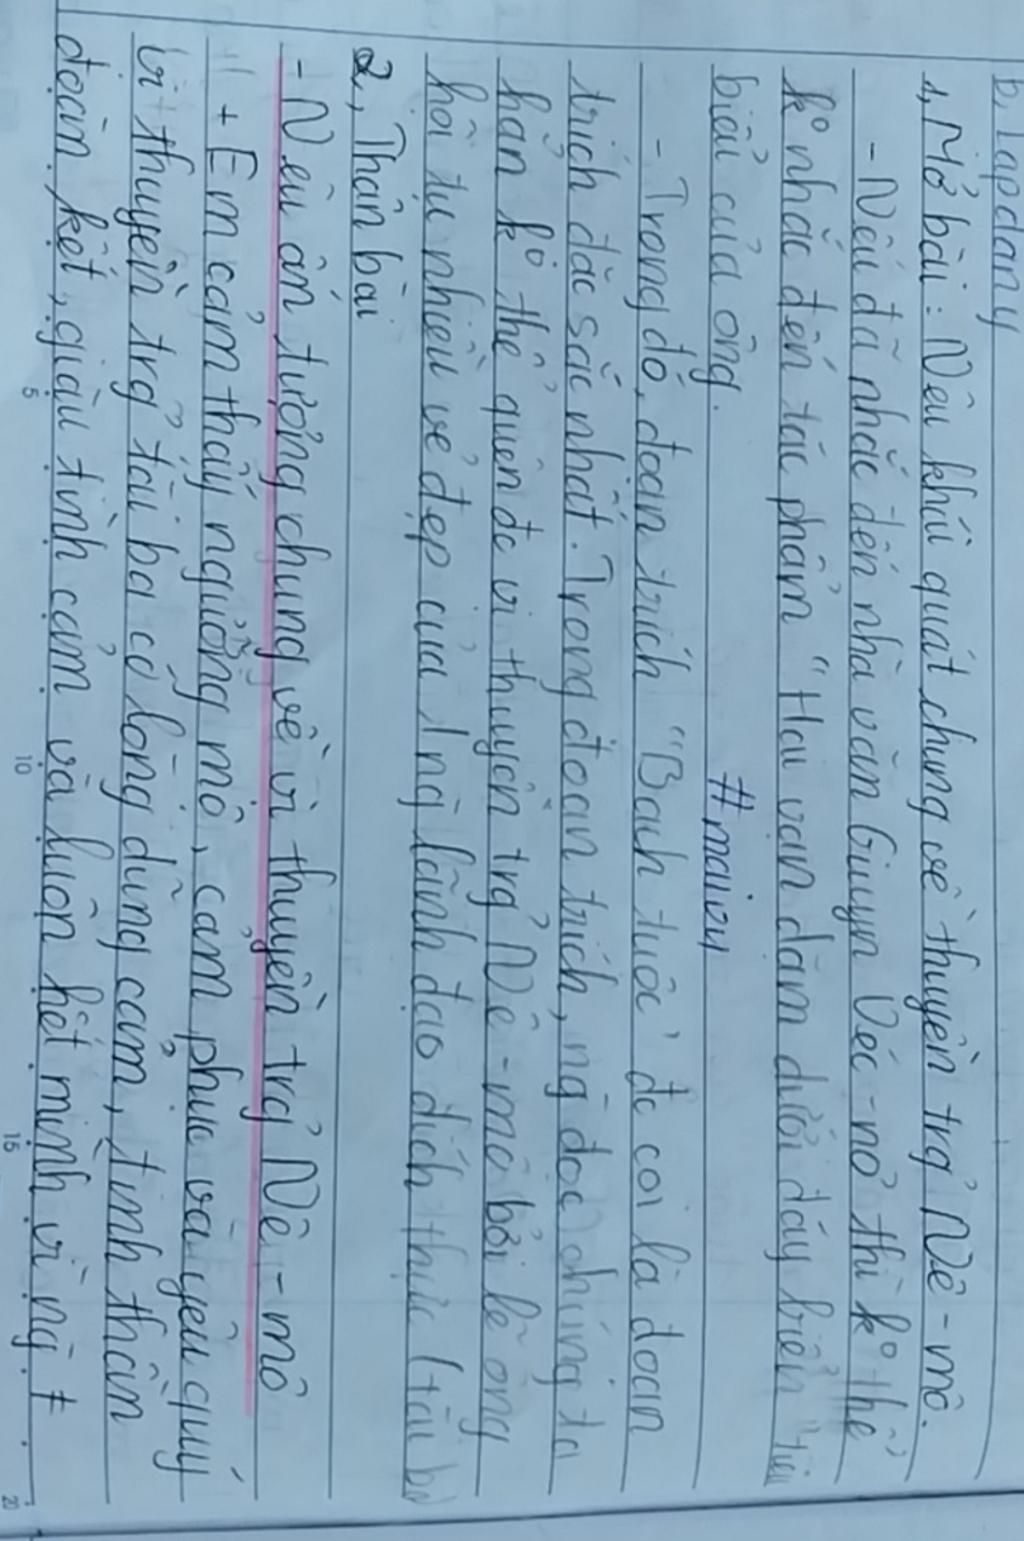 b, Lập dàn ý
1, Mở bài: Nêu khái quát chung về thuyền trg̉ Nê-mô.
- Nếu đã nhắc đến nhà văn Giuyn Véc-nơ thì kº thể
kº nhắc đến tác phẩm "Hai vạn dặm dưới đáy biển" tiêu
biểu của ông.
#maiou
- Trong đó, đoạn trích "Bạch tuộc" đc coi là đoạn
trích đặc sắc nhất. Trong đoạn trích, ng̀ đọc chúng ta
hẳn kº thể quên đc vị thuyền trg̉ Nê-mô bởi lẽ ông
hội tụ nhiều vẻ đẹp của 1 ng̀ lãnh đạo đích thực (tài ba
2, Thân bài
- Nêu ấn tượng chung về vị thuyền trg̉ Nê-mô
+ Em cảm thấy ngưỡng mộ, cảm phục và yêu quý
vị thuyền trg̉ tài ba có lòng dũng cảm, tinh thần
đoàn kết, giàu tình cảm và luôn hết mình vì ng̀ ≠
5
10
15
20